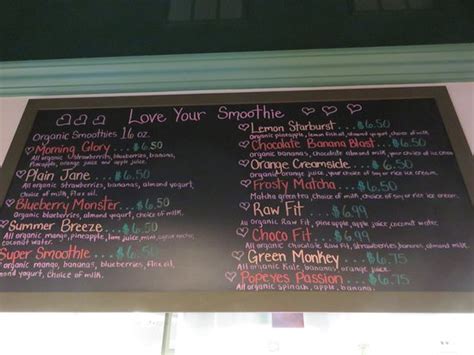 Love Your Smoothie
Organic Smoothies 16 oz.
Morning Glory...$6.50
All organic Strawberries, blueberries, bananas,
pineapple, orange juice and apple juice.
Plain Jane....$6.50
All organic strawberries, bananas, almond yogurt,
choice of milk, flax oil.
Blueberry Monster..$6.50
Organic blueberries, almond yogurt, choice of milk.
Summer Breeze...$6.50
All organic mango, pineapple, lime juice, agave nectar,
coconut water.
Super Smoothie...$6.50
organic mango, bananas, blueberries, flax oil,
almond yogurt, choice of milk.
Lemon Starburst...$6.50
Organic pineapple, lemon, almond yogurt, choice of milk.
Chocolate Banana Blast..$6.50
organic bananas, chocolate almond milk, choice of milk
Orange Creamsicle..$6.50
orange juice, choice of soy or rice ice cream.
Frosty Matcha..$6.50
Matcha greentea, choice of milk, choice of soy or rice ice cream.
Raw Fit...$6.99
All organic pineapple, apple juice, coconut water.
Choco Fit...$6.99
All organic chocolate Raw fit, Strawberries, bananas, almond milk.
Green Monkey...$6.75
All organic Kale, bananas, orange juice.
Popeyes Passion...$6.75
All organic spinach, apple, banana.